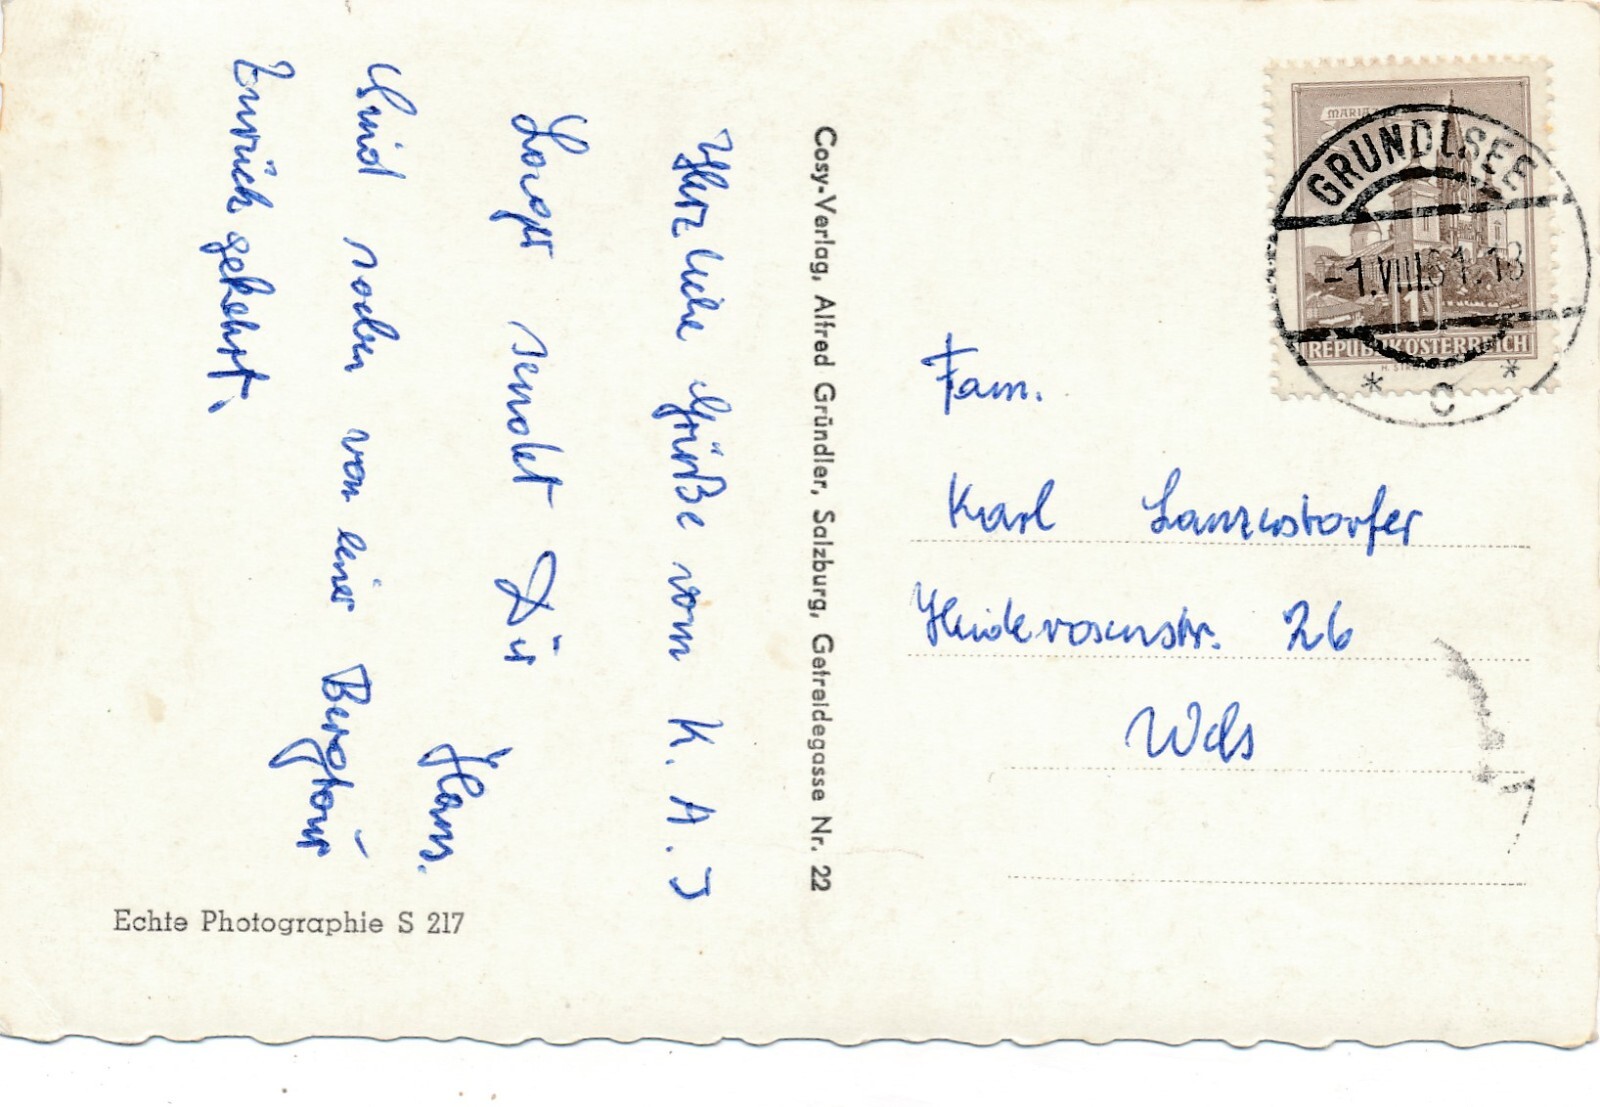 Herzliche Grüße vom K. A. J
Lager sendet Dir
Hans.
Sind soeben von einer Bergtour
zurück gekehrt.
Echte Photographie S 217
Cosy-Verlag, Alfred Gründler, Salzburg, Getreidegasse Nr. 22
MARIAZ
GRUNDLSEE
-1.VIII.61.18
1S
REPUBLIK ÖSTERREICH
* c *
Fam.
Karl Lanzerstorfer
Heiderosenstr. 26
Wels